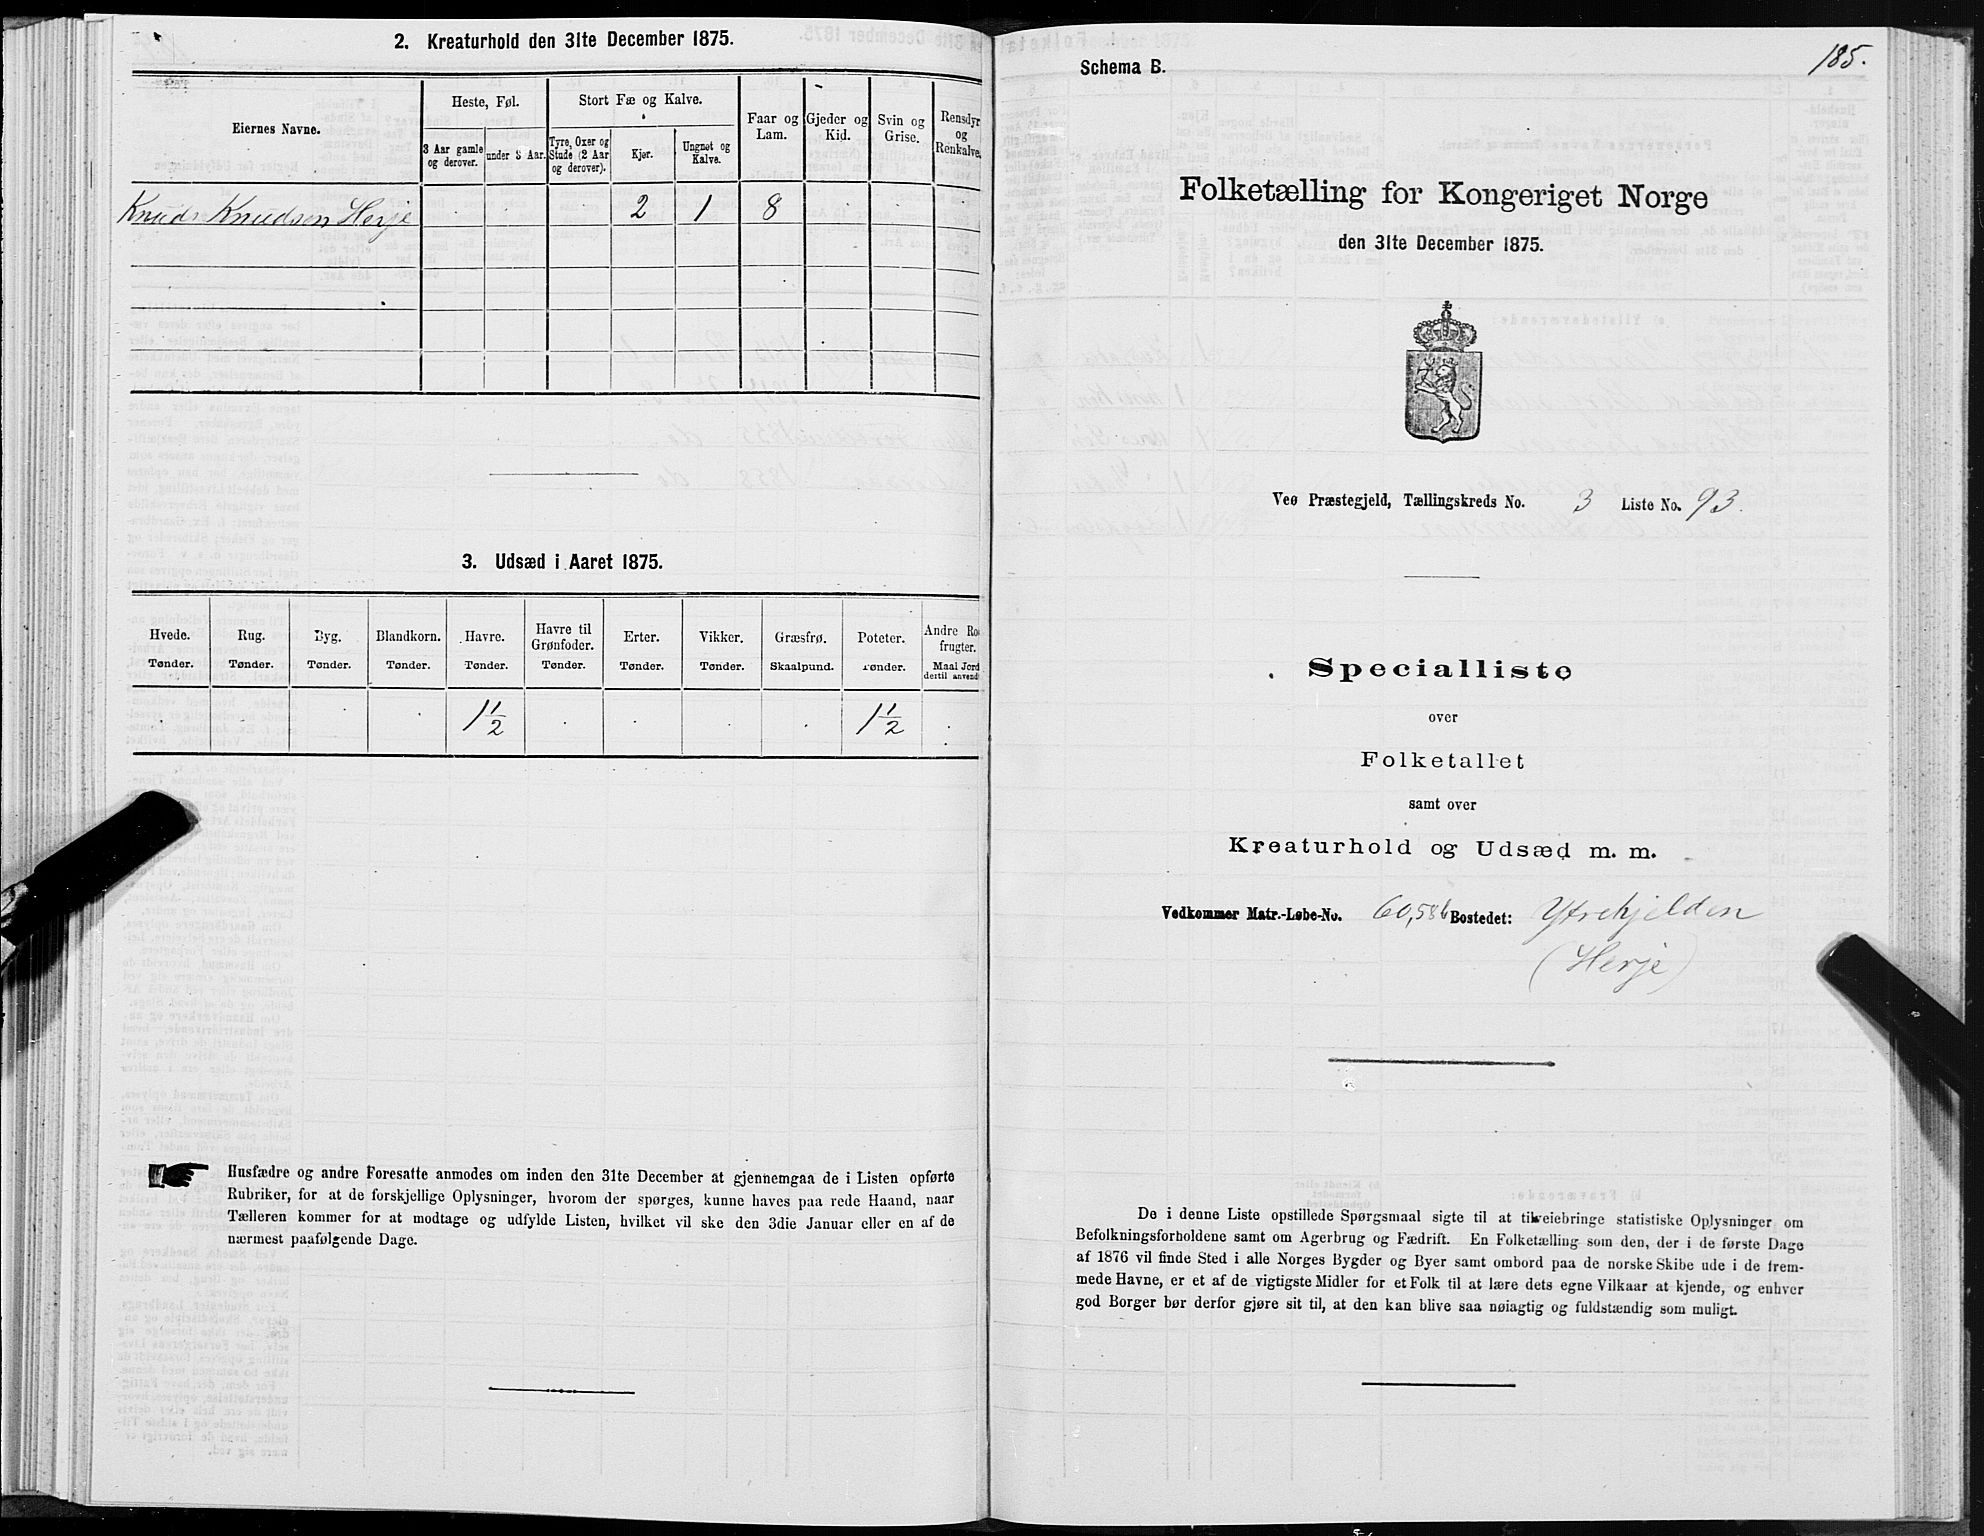 2. Kreaturhold den 31te December 1875.
Eiernes Navne.
Heste, Føl.
3 Aar gamle og derover.
under 3 Aar.
Stort Fæ og Kalve.
Tyre, Oxer og Stude (2 Aar og derover).
Kjør.
Ungnøt og Kalve.
Faar og Lam.
Gjeder og Kid.
Svin og Grise.
Rensdyr og Renkalve.
Knud Knudsen Herje . . . 2 1 8 . . .
3. Udsæd i Aaret 1875.
Hvede. Rug. Byg. Blandkorn. Havre. Havre til Grønfoder. Erter. Vikker. Græsfrø. Poteter. Andre Ro frugter.
Tønder. Tønder. Tønder. Tønder. Tønder. Tønder. Tønder. Tønder. Skaalpund. Tønder. Maal Jord dertil anvendt
. . . . 1 1/2 . . . . 1 1/2 .
Husfædre og andre Foresatte anmodes om inden den 31te December at gjennemgaa de i Listen opførte
Rubriker, for at de forskjellige Oplysninger, hvorom der spørges, kunne haves paa rede Haand, naar
Tælleren kommer for at modtage og udfylde Listen, hvilket vil ske den 3die Januar eller en af de
nærmest paafølgende Dage.
185.
Schema B.
Folketælling for Kongeriget Norge
den 31te December 1875.
Veø Præstegjeld, Tællingskreds No. 3 Liste No. 93.
Specialliste
over
Folketallet
samt over
Kreaturhold og Udsæd m. m.
Vedkommer Matr.-Løbe-No. 60,58b Bostedet: Ytrekjelden
(Herje)
De i denne Liste opstillede Spørgsmaal sigte til at tilveiebringe statistiske Oplysninger om
Befolkningsforholdene samt om Agerbrug og Fædrift. En Folketælling som den, der i de første Dage
af 1876 vil finde Sted i alle Norges Bygder og Byer samt ombord paa de norske Skibe ude i de frem-
mede Havne, er et af de vigtigste Midler for et Folk til at lære dets egne Vilkaar at kjende, og enhver
god Borger bør derfor gjøre sit til, at den kan blive saa nøiagtig og fuldstændig som muligt.